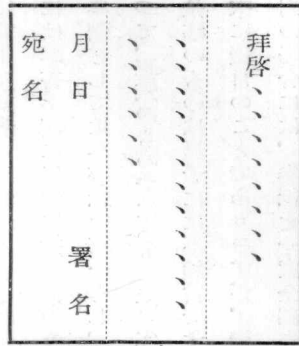 拝啓、、、、、、、、
、、、、、、、、、、、、
、、、、、、
月日　署名
宛名